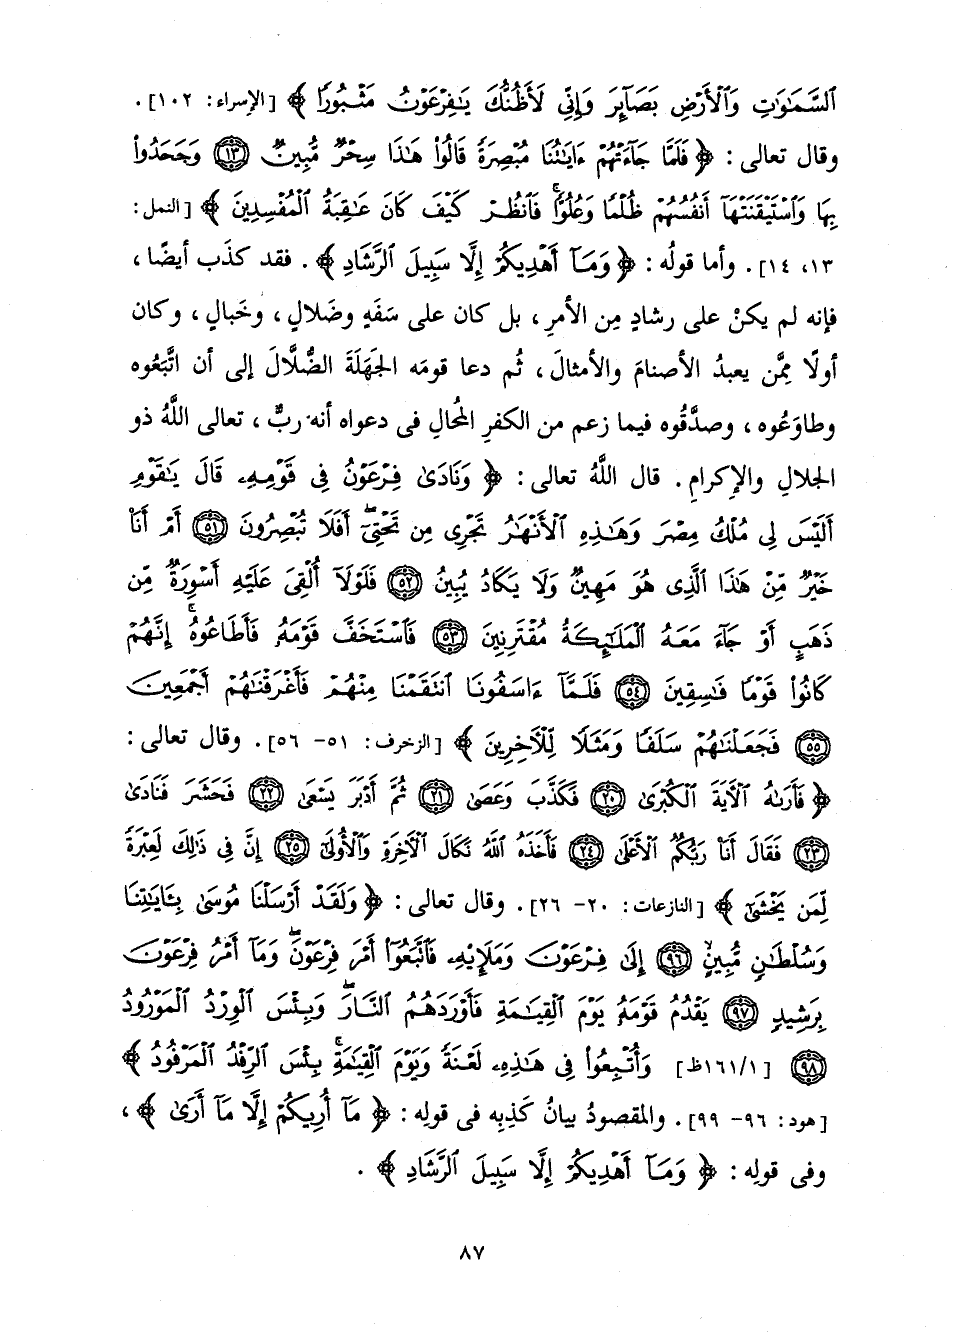 ٱلسَّمَٰوَٰتِ وَٱلْأَرْضِ بَصَآئِرَ وَإِنِّى لَأَظُنُّكَ يَٰفِرْعَوْنُ مَثْبُورًا ﴾ [الإسراء: ١٠٢].
وقال تعالى: ﴿ فَلَمَّا جَآءَتْهُمْ ءَايَٰتُنَا مُبْصِرَةً قَالُوا۟ هَٰذَا سِحْرٌ مُّبِينٌ ۝١٣ وَجَحَدُوا۟
بِهَا وَٱسْتَيْقَنَتْهَآ أَنفُسُهُمْ ظُلْمًا وَعُلُوًّا ۚ فَٱنظُرْ كَيْفَ كَانَ عَٰقِبَةُ ٱلْمُفْسِدِينَ ﴾ [النمل:
١٣، ١٤]. وأما قولُه: ﴿ وَمَآ أَهْدِيكُمْ إِلَّا سَبِيلَ ٱلرَّشَادِ ﴾. فقد كذَب أيضًا،
فإنه لم يكنْ على رشادٍ مِن الأمرِ، بل كان على سَفَهٍ وضَلالٍ، وخَبالٍ، وكان
أولًا مِمَّن يعبدُ الأصنامَ والأمثالَ، ثُم دعا قومَه الجَهَلَةَ الضُّلَّالَ إلى أن اتَّبَعُوه
وطاوَعُوه، وصدَّقُوه فيما زعم من الكفرِ المُحالِ فى دعواه أنه ربٌّ، تعالى اللَّهُ ذو
الجلالِ والإكرامِ. قال اللَّهُ تعالى: ﴿ وَنَادَىٰ فِرْعَوْنُ فِى قَوْمِهِۦ قَالَ يَٰقَوْمِ
أَلَيْسَ لِى مُلْكُ مِصْرَ وَهَٰذِهِ ٱلْأَنْهَٰرُ تَجْرِى مِن تَحْتِىٓ ۖ أَفَلَا تُبْصِرُونَ ۝٥١ أَمْ أَنَا۠
خَيْرٌ مِّنْ هَٰذَا ٱلَّذِى هُوَ مَهِينٌ وَلَا يَكَادُ يُبِينُ ۝٥٢ فَلَوْلَآ أُلْقِىَ عَلَيْهِ أَسْوِرَةٌ مِّن
ذَهَبٍ أَوْ جَآءَ مَعَهُ ٱلْمَلَٰٓئِكَةُ مُقْتَرِنِينَ ۝٥٣ فَٱسْتَخَفَّ قَوْمَهُۥ فَأَطَاعُوهُ ۚ إِنَّهُمْ
كَانُوا۟ قَوْمًا فَٰسِقِينَ ۝٥٤ فَلَمَّآ ءَاسَفُونَا ٱنتَقَمْنَا مِنْهُمْ فَأَغْرَقْنَٰهُمْ أَجْمَعِينَ
۝٥٥ فَجَعَلْنَٰهُمْ سَلَفًا وَمَثَلًا لِّلْـَٔاخِرِينَ ﴾ [الزخرف: ٥١- ٥٦]. وقال تعالى:
﴿ فَأَرَىٰهُ ٱلْـَٔايَةَ ٱلْكُبْرَىٰ ۝٢٠ فَكَذَّبَ وَعَصَىٰ ۝٢١ ثُمَّ أَدْبَرَ يَسْعَىٰ ۝٢٢ فَحَشَرَ فَنَادَىٰ
۝٢٣ فَقَالَ أَنَا۠ رَبُّكُمُ ٱلْأَعْلَىٰ ۝٢٤ فَأَخَذَهُ ٱللَّهُ نَكَالَ ٱلْـَٔاخِرَةِ وَٱلْأُولَىٰٓ ۝٢٥ إِنَّ فِى ذَٰلِكَ لَعِبْرَةً
لِّمَن يَخْشَىٰٓ ﴾ [النازعات: ٢٠- ٢٦]. وقال تعالى: ﴿ وَلَقَدْ أَرْسَلْنَا مُوسَىٰ بِـَٔايَٰتِنَا
وَسُلْطَٰنٍ مُّبِينٍ ۝٩٦ إِلَىٰ فِرْعَوْنَ وَمَلَإِي۟هِۦ فَٱتَّبَعُوٓا۟ أَمْرَ فِرْعَوْنَ ۖ وَمَآ أَمْرُ فِرْعَوْنَ
بِرَشِيدٍ ۝٩٧ يَقْدُمُ قَوْمَهُۥ يَوْمَ ٱلْقِيَٰمَةِ فَأَوْرَدَهُمُ ٱلنَّارَ ۖ وَبِئْسَ ٱلْوِرْدُ ٱلْمَوْرُودُ
۝٩٨ [١/١٦١ظ] وَأُتْبِعُوا۟ فِى هَٰذِهِۦ لَعْنَةً وَيَوْمَ ٱلْقِيَٰمَةِ ۚ بِئْسَ ٱلرِّفْدُ ٱلْمَرْفُودُ ﴾
[هود: ٩٦- ٩٩]. والمقصودُ بيانُ كَذِبِه فى قولِه: ﴿ مَآ أُرِيكُمْ إِلَّا مَآ أَرَىٰ ﴾،
وفى قولِه: ﴿ وَمَآ أَهْدِيكُمْ إِلَّا سَبِيلَ ٱلرَّشَادِ ﴾.
٨٧